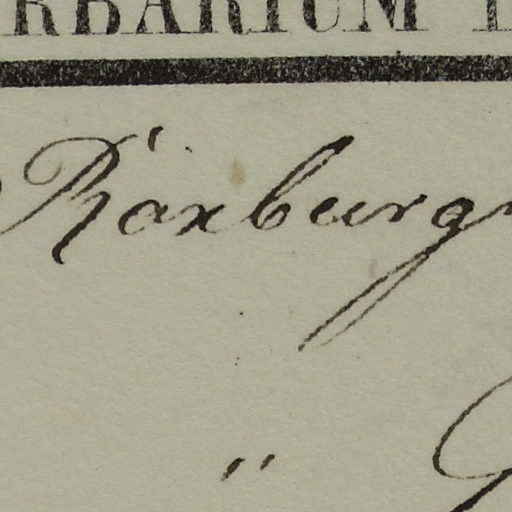 RBARIUM
Roxburg
"